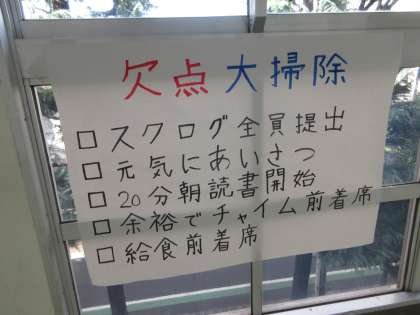 欠点大掃除
□スクログ全員提出
□元気にあいさつ
□20分朝読書開始
□余裕でチャイム前着席
□給食前着席